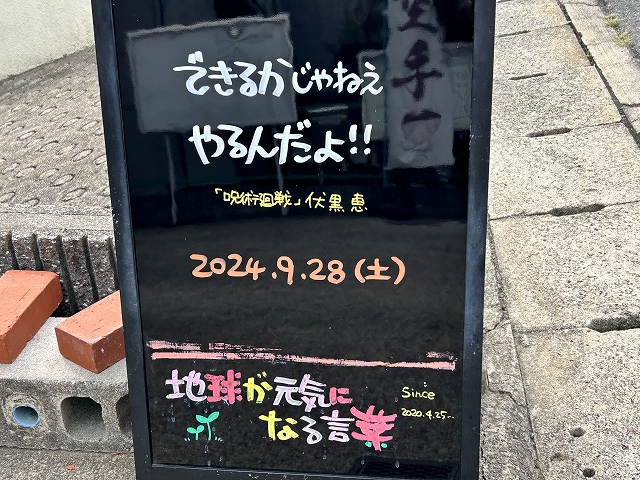 できるかじゃねぇ
やるんだよ!!
「呪術廻戦」伏黒 恵
2024.9.28(土)
地球が元気に
なる言葉
Since
2020.4.25~
空手